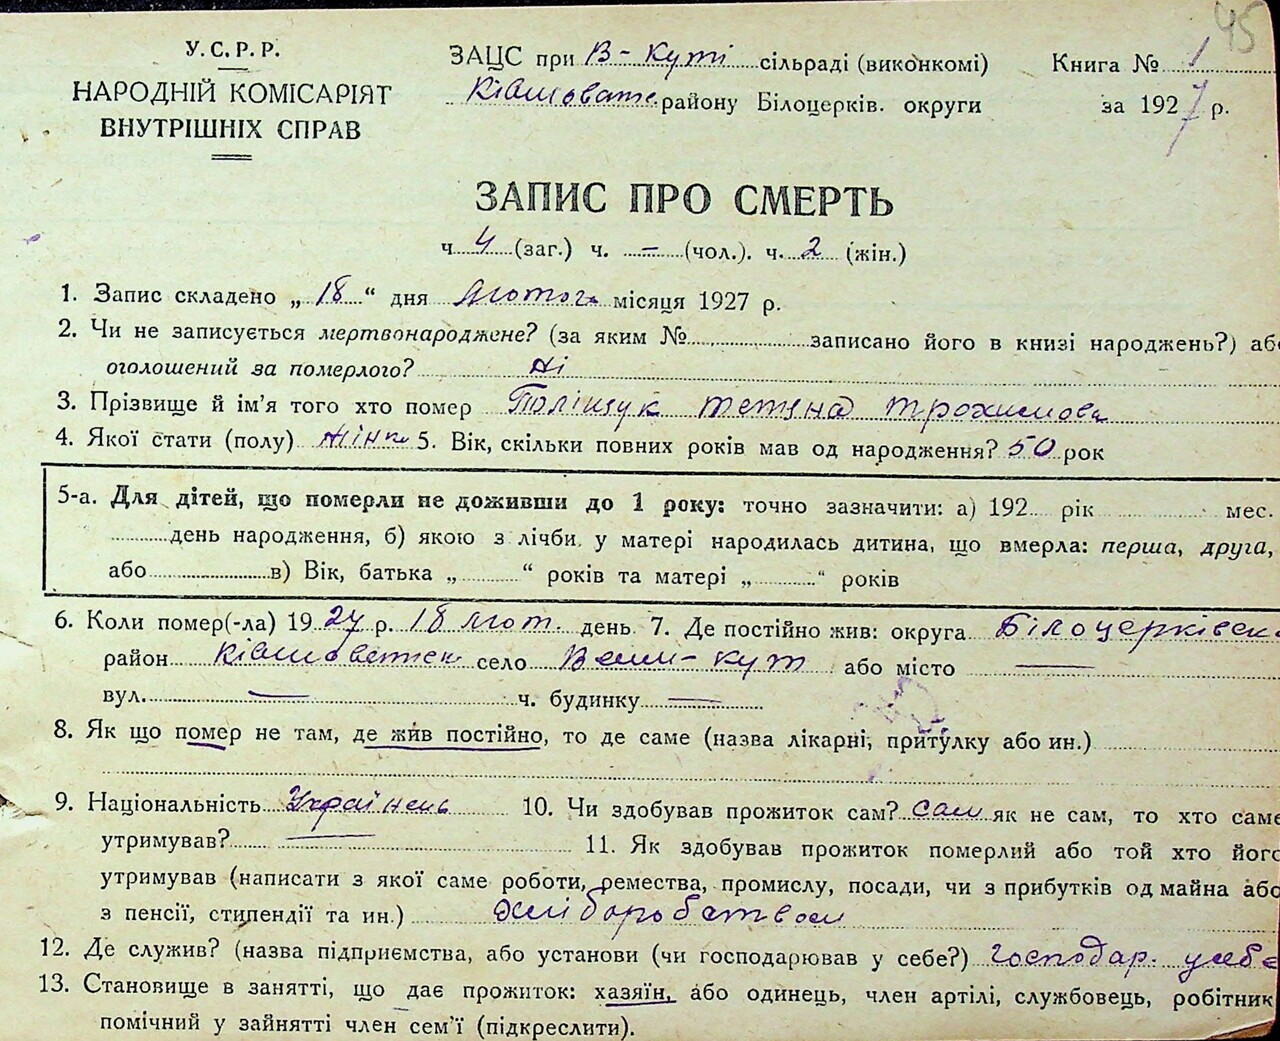 45
У.С.Р.Р.
НАРОДНІЙ КОМІСАРІЯТ
ВНУТРІШНІХ СПРАВ
ЗАЦС при В-Куті сільраді (виконкомі)
Ківшоват. району Білоцерків. округи
Книга № 1
за 1927 р.
ЗАПИС ПРО СМЕРТЬ
ч. 4 (заг.) ч. — (чол.). ч. 2 (жін.)
1. Запис складено „18“ дня Лютого місяця 1927 р.
2. Чи не записується мертвонароджене? (за яким № записано його в книзі народжень?) або
оголошений за померлого? Ні
3. Прізвище й ім'я того хто помер Поліщук Тетяна Трохимова
4. Якої стати (полу) жінк 5. Вік, скільки повних років мав од народження? 50 рок
5-а. Для дітей, що померли не доживши до 1 року: точно зазначити: а) 192 рік мес.
день народження, б) якою з лічби у матері народилась дитина, що вмерла: перша, друга,
або в) Вік, батька „ “ років та матері „ “ років
6. Коли помер(-ла) 1927 р. 18 лют. день 7. Де постійно жив: округа Білоцерківськ
район Ківшоватськ село Вели-Кут або місто —
вул. — ч. будинку —
8. Як що помер не там, де жив постійно, то де саме (назва лікарні, притулку або ин.)
9. Національність Українець 10. Чи здобував прожиток сам? сам як не сам, то хто саме
утримував? — 11. Як здобував прожиток померлий або той хто його
утримував (написати з якої саме роботи, ремества, промислу, посади, чи з прибутків од майна або
з пенсії, стипендії та ин.) хліборобством
12. Де служив? (назва підприємства, або установи (чи господарював у себе?) господар. у себе
13. Становище в занятті, що дає прожиток: хазяїн, або одинець, член артілі, службовець, робітник,
помічний у зайнятті член сем'ї (підкреслити).